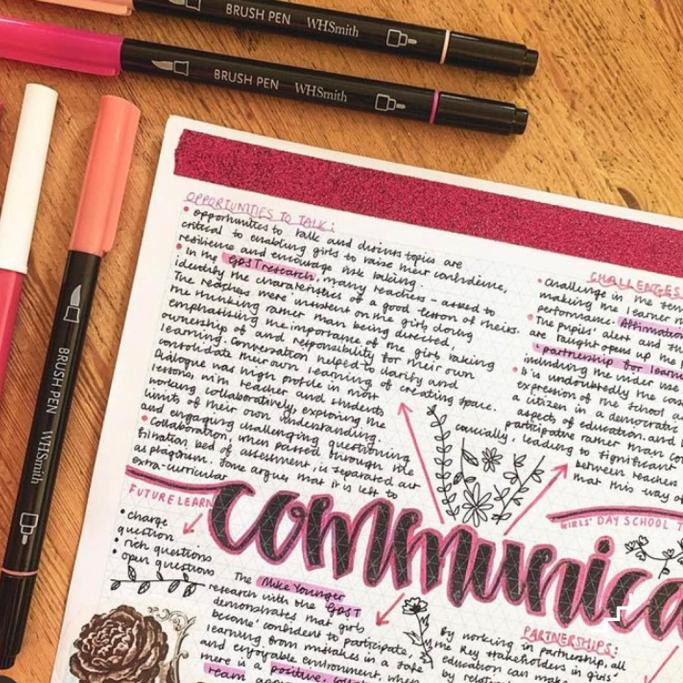 BRUSH PEN WHSmith
BRUSH PEN WHSmith
BRUSH PEN WHSmith
OPPORTUNITIES TO TALK:
• opportunities to talk and discuss topics are
critical to enabling girls to raise their confidence,
resilience and encourage risk taking.
• In my GDST research, many teachers - asked to
identify the charateristics of a good lesson of theirs.
The teachers were insistent on the girls doing
the thinking rather than being directed,
emphasising the importance of the girls taking
ownership of and responsibility for their own
learning. Conversation helped to clarify and
consolidate their own learning of creating space.
Dialogue was high profile in most
lessons, with teacher and students
working collaboratively, exploring the
limits of their own understanding.
and engaging challenging questioning
• Collaboration, when passed through the
filtration bed of assessment, is separated out
as plagiarism. Jane argues that it is left to
extra-curricular
CHALLENGES
• Challenge in the
making the learner
performance. Affirmation
• The pupils' alert and
are taught opens up the
'partnership for learn
including the wider use
• It is undoubtedly the
expression of the school
a citizen in a democratic
aspects of education, and
participative rather than
crucially, leading to significant
between teachers
that this way of
FUTURE LEARN
• charge
question
• rich questions
• open questions
communica
GIRLS' DAY SCHOOL T
The Mike Younger
research with the GDST
demonstrates that girls
become confident to participate,
learning from mistakes in a safe
and enjoyable environment, when
there is a positive,
team
PARTNERSHIPS:
By working in partnership, all
the key stakeholders in girls'
education can make
by